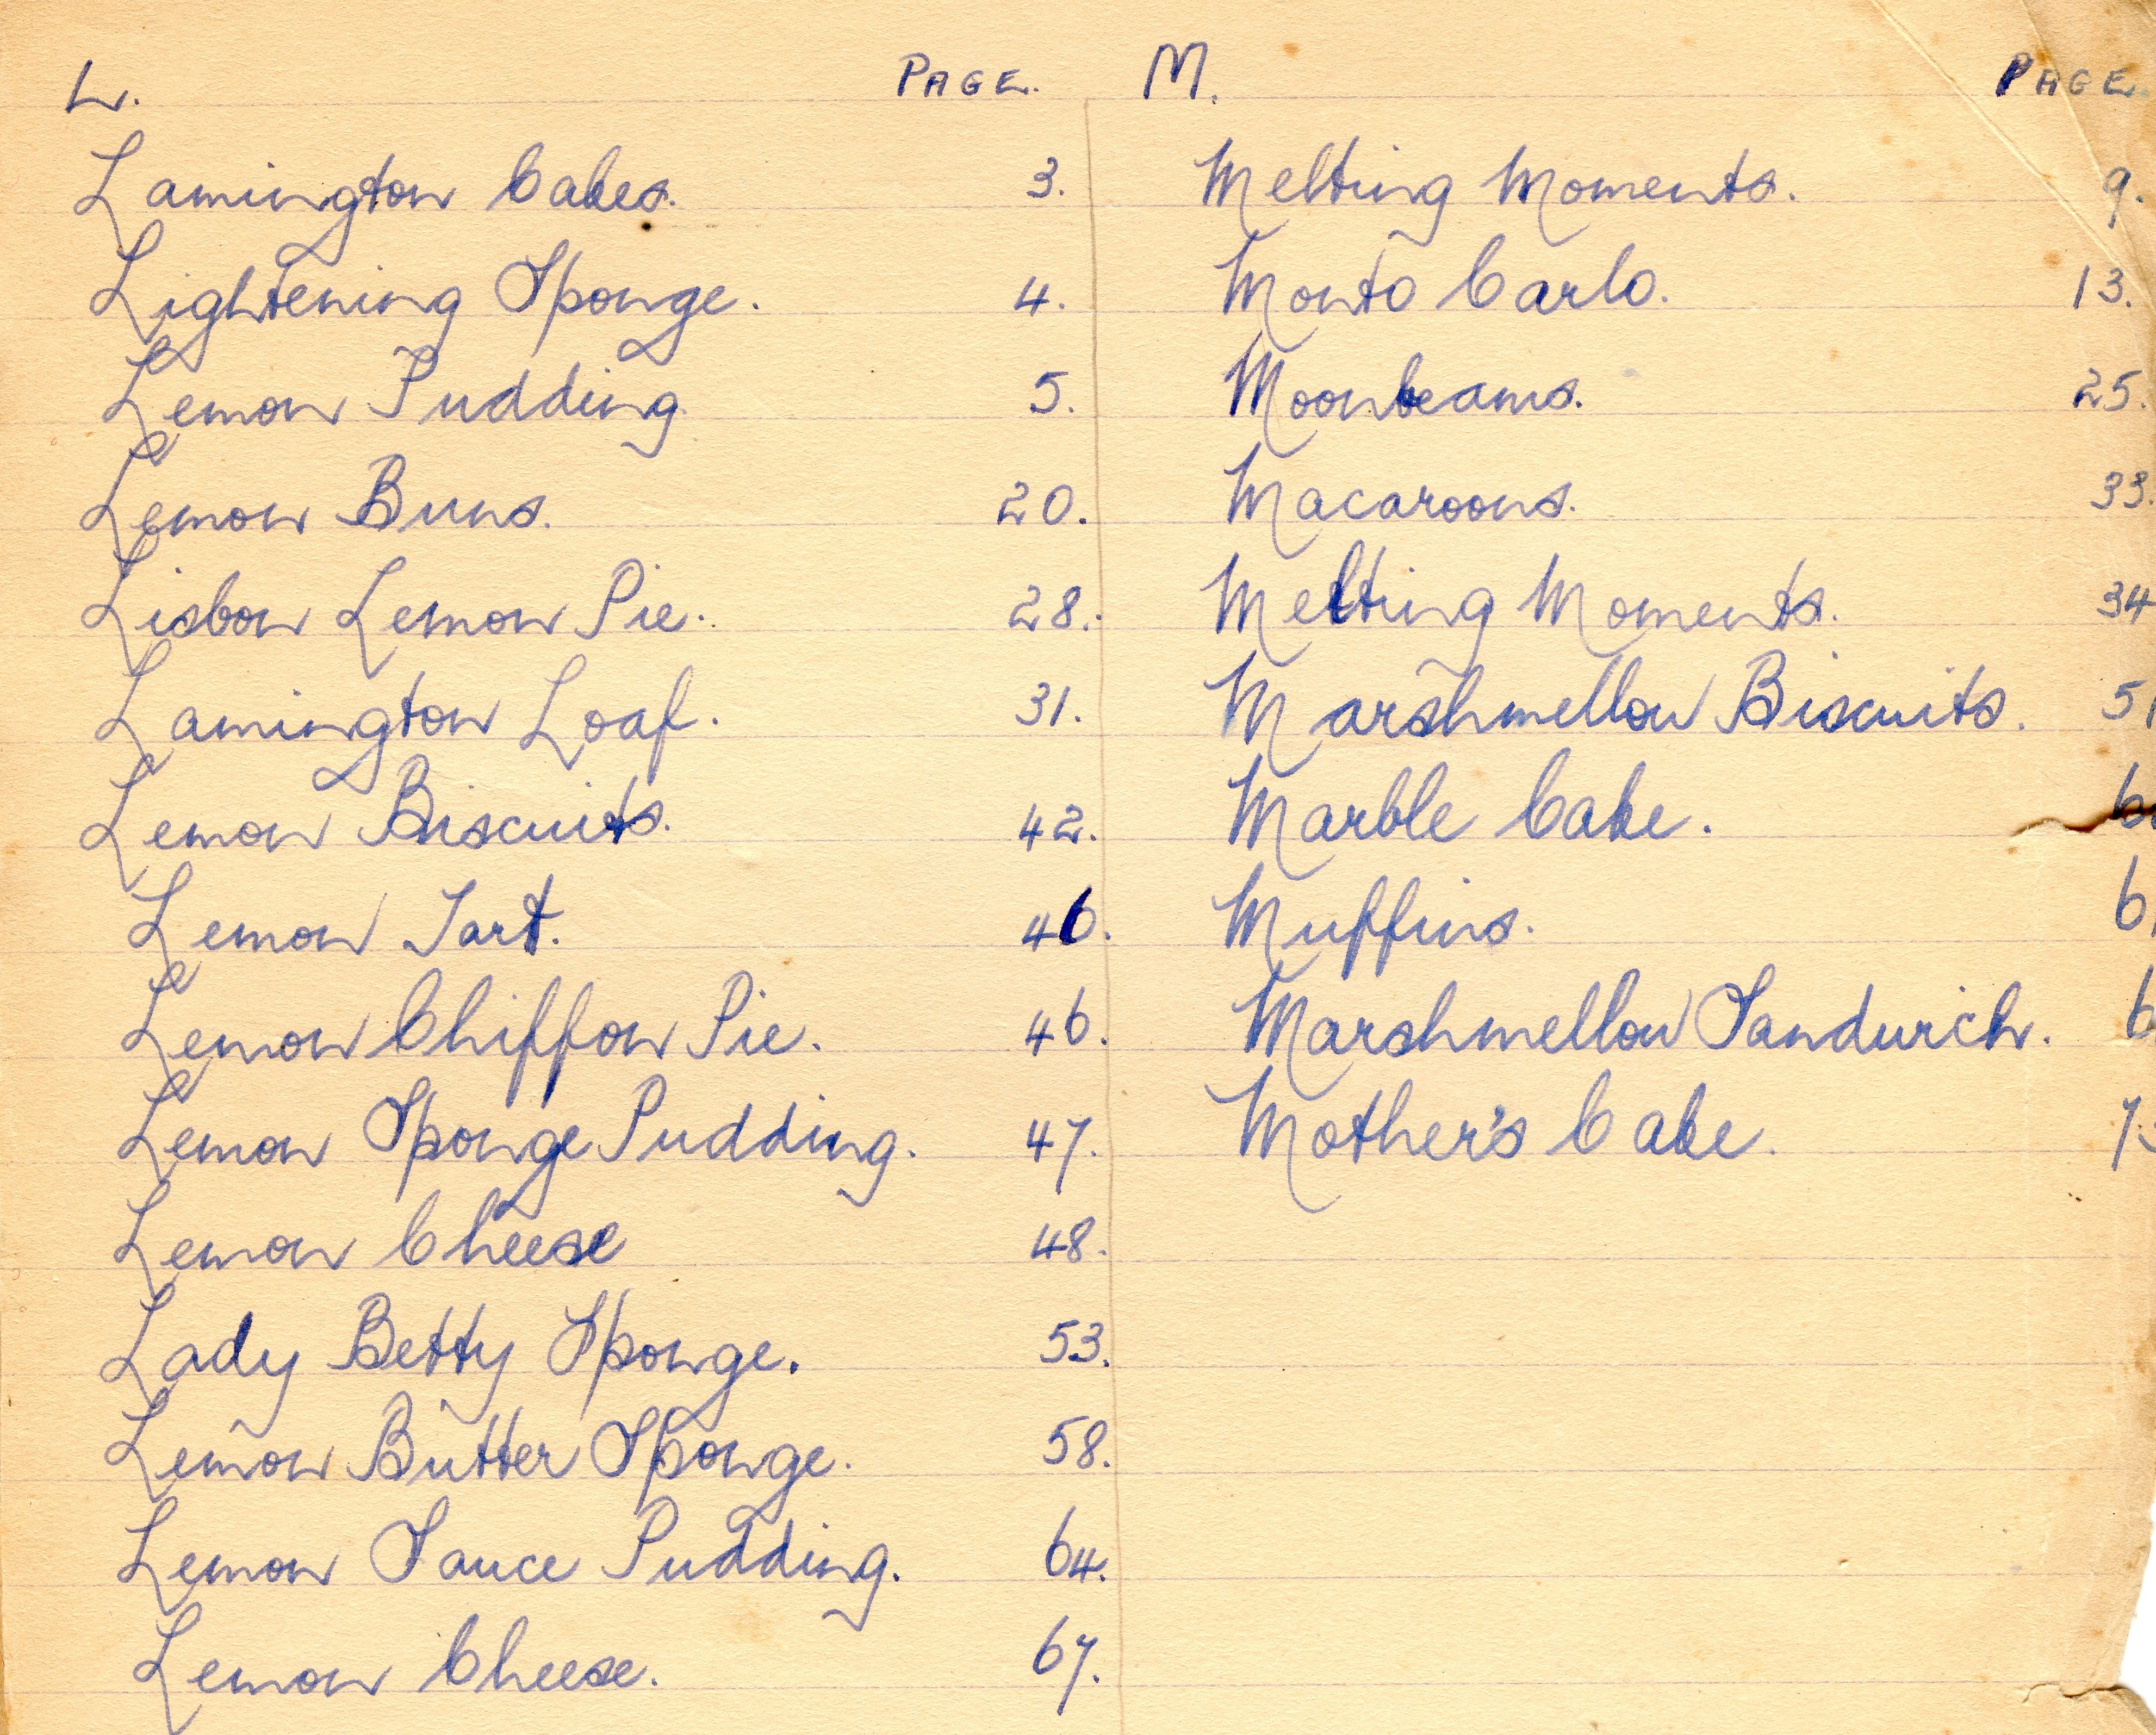 L. PAGE.
Lamington Cakes. 3.
Lightening Sponge. 4.
Lemon Pudding 5.
Lemon Buns. 20.
Lisbon Lemon Pie. 28.
Lamington Loaf. 31.
Lemon Biscuits. 42.
Lemon Tart. 46.
Lemon Chiffon Pie. 46.
Lemon Sponge Pudding. 47.
Lemon Cheese 48.
Lady Betty Sponge. 53.
Lemon Butter Sponge. 58.
Lemon Sauce Pudding. 64.
Lemon Cheese. 67.
M. PAGE.
Melting Moments. 9.
Monto Carlo. 13.
Moonbeams. 25.
Macaroons. 33.
Melting Moments. 34
Marshmellow Biscuits. 51
Marble Cake.
Muffins.
Marshmellow Sandwich.
Mother's Cake.